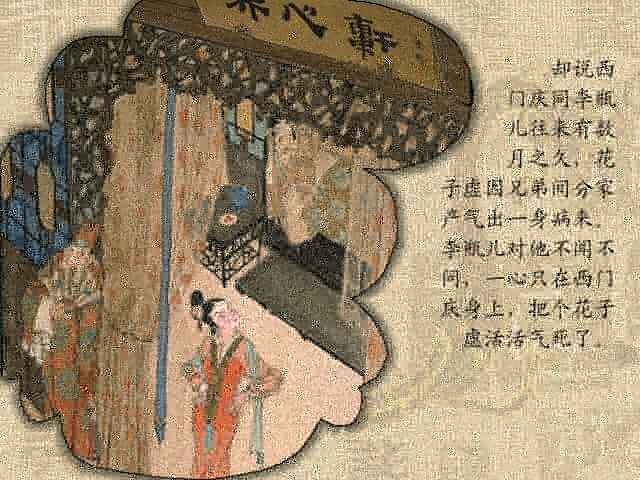 养心轩
却说西
门庆同李瓶
儿往来有数
月之久，花
子虚因兄弟间分家
产气出一身病来。
李瓶儿对他不闻不
问，一心只在西门
庆身上，把个花子
虚活活气死了。